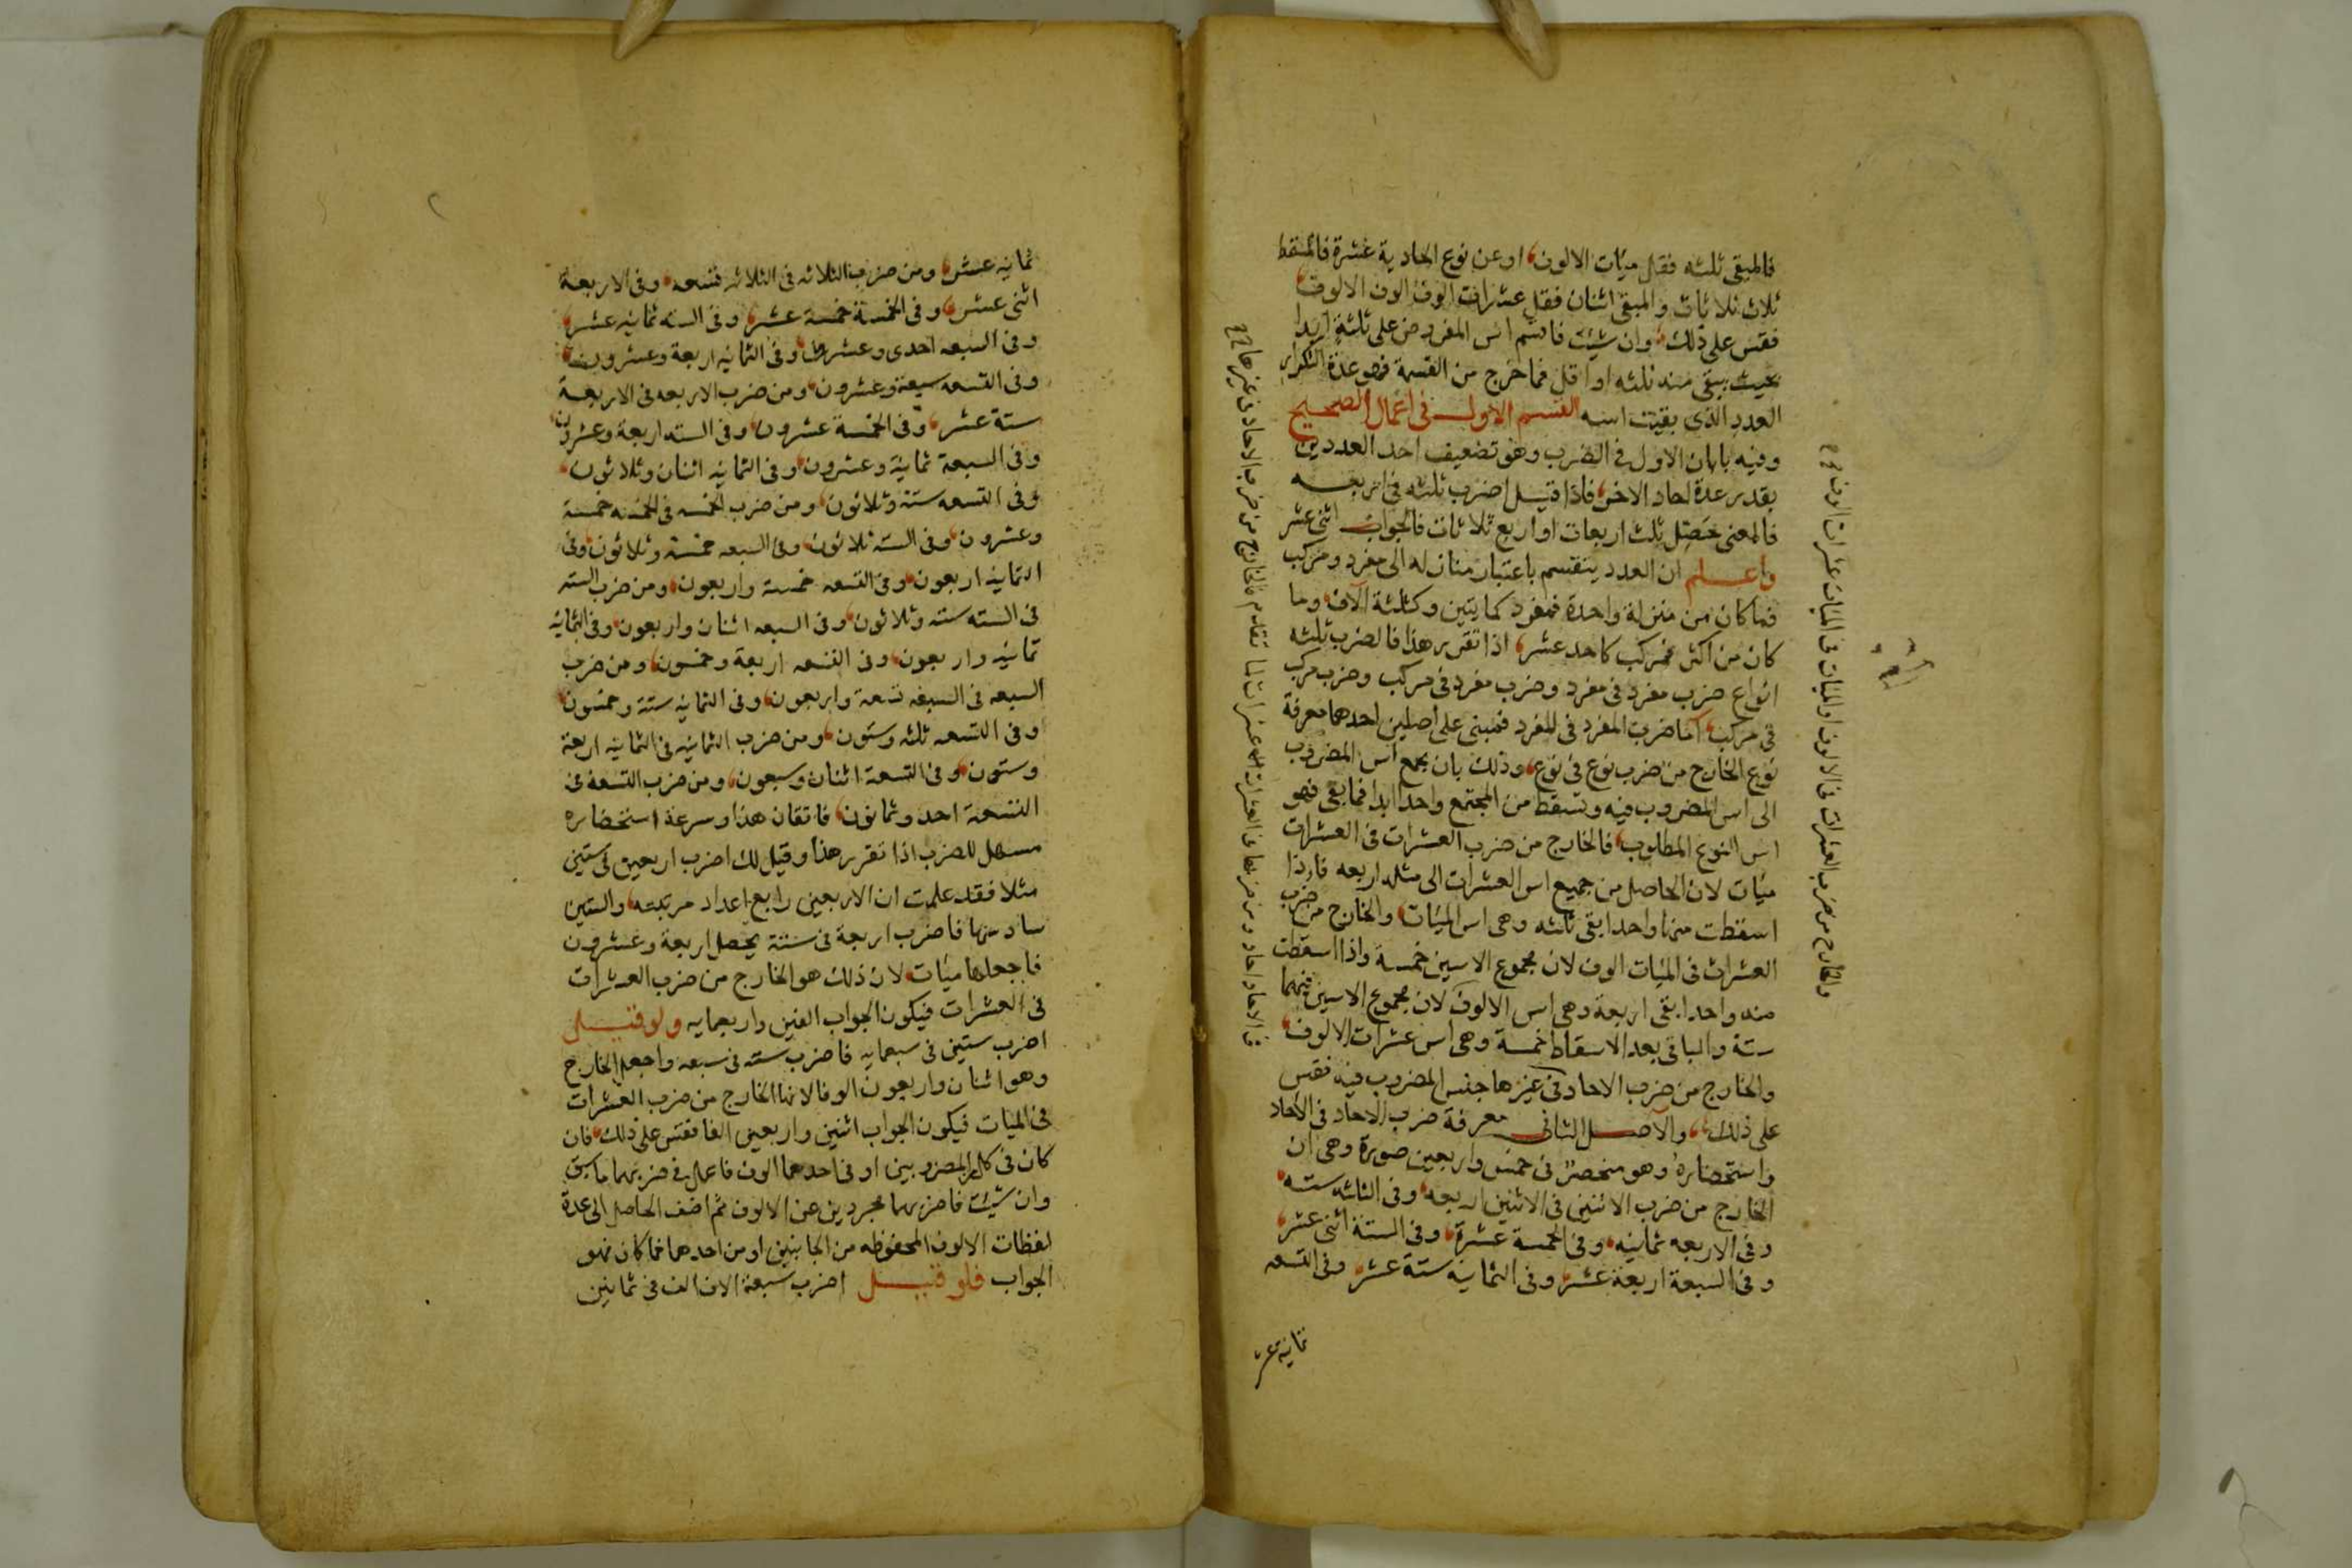 فالمبقى ثلثه فقل ميات الالوف او عن نوع الحادية عشرة فالمسقط
ثلاث ثلاثات والمبقى اثنان فقل عشرات الوف الوف الالوف
فقس على ذلك وان شيت فاقسم اس المفروض على ثلثة ابدا
بحيث يبقى منه ثلثه او اقل فما خرج من القسمة فهو عدة التكرار
العدد الذى بقيت اسه القسم الاول فى اعمال الصحيح
وفيه بابان الاول فى الضرب وهو تضعيف احد العددين
بقدر عدة احاد الاخر فاذا قيل اضرب ثلثه فى اربعه
فالمعنى حصل ثلث اربعات او اربع ثلاثات فالجواب اثنى عشر
واعلم ان العدد ينقسم باعتبار منازله الى مفرد ومركب
فما كان من منزلة واحدة فمفرد كمايتين وكثلثة آلاف وما
كان من اكثر فمركب كاحد عشر اذا تقرر هذا فالضرب ثلثه
انواع ضرب مفرد فى مفرد وضرب مفرد فى مركب وضرب مركب
فى مركب اما ضرب المفرد فى المفرد فمبنى على اصلين احدهما معرفة
نوع الخارج من ضرب نوع فى نوع وذلك بان يجمع اس المضروب
الى اس المضروب فيه وتسقط من المجتمع واحدا ابدا فما بقى فهو
اس النوع المطلوب فالخارج من ضرب العشرات فى العشرات
ميات لان الحاصل من جميع اس العشرات الى مثله اربعه فاذا
اسقطت منها واحدا بقى ثلثه وهى اس الميات والخارج من ضرب
العشرات فى الميات الوف لان مجموع الاسين خمسة واذا اسقطت
منه واحدا بقى اربعة وهى اس الالوف لان مجموع الاسين فيهما
ستة والباقى بعد الاسقاط خمسة وهى اس عشرات الالوف
والخارج من ضرب الاحاد فى غيرها جنس المضروب فيه فقس
على ذلك والاصل الثانى معرفة ضرب الاحاد فى الاحاد
واستحضاره وهو منحصر فى خمس واربعين صورة وهى ان
الخارج من ضرب الاثنين فى الاثنين اربعه وفى الثلثه سته
وفى الاربعه ثمانيه وفى الخمسة عشرة وفى الستة اثنى عشر
وفى السبعة اربعة عشر وفى الثمانيه ستة عشر وفى التسعه
ثمانية عشر
والخارج من ضرب العشرات فى الالوف او الميات فى الميات عشرات الوف
ثمانيه عشر ومن ضرب الثلاثه فى الثلاثه فتسعه وفى الاربعة
اثنى عشر وفى الخمسة خمسة عشر وفى السته ثمانيه عشر
وفى السبعه احدى وعشرون وفى الثمانيه اربعة وعشرون
وفى التسعه سبعة وعشرون ومن ضرب الاربعه فى الاربعة
ستة عشر وفى الخمسة عشرون وفى السته اربعة وعشرون
وفى السبعة ثمانية وعشرون وفى الثمانيه اثنان وثلاثون
وفى التسعه ستة وثلاثون ومن ضرب الخمسه فى الخمسه خمسة
وعشرون وفى الستة ثلاثون وفى السبعه خمسة وثلاثون وفى
الثمانيه اربعون وفى التسعه خمسة واربعون ومن ضرب السته
فى السته سته وثلاثون وفى السبعه اثنان واربعون وفى الثمانيه
ثمانيه واربعون وفى التسعه اربعة وخمسون ومن ضرب
السبعه فى السبعه تسعة واربعون وفى الثمانيه ستة وخمسون
وفى التسعه ثلثه وستون ومن ضرب الثمانيه فى الثمانيه اربعة
وستون وفى التسعة اثنان وسبعون ومن ضرب التسعة فى
التسعة احد وثمانون فاتقان هذا وسرعة استحضاره
مسهل للضرب اذا تقرر هذا وقيل لك اضرب اربعين فى ستين
مثلا فقد علمت ان الاربعين رابع اعداد مرتبته والستين
سادسها فاضرب اربعة فى ستة يحصل اربعة وعشرون
فاجعلها ميات لان ذلك هو الخارج من ضرب العشرات
فى العشرات فيكون الجواب الفين واربعمايه ولو قيل
اضرب ستين فى سبعمايه فاضرب سته فى سبعه واجعل الخارج
وهو اثنان واربعون الوفا لانها الخارج من ضرب العشرات
فى الميات فيكون الجواب اثنين واربعين الفا فقس على ذلك فان
كان فى كل المضروبين او فى احدهما الوف فاعمل فى ضربهما ما سبق
وان شيت فاضربهما مجردين عن الالوف ثم اضف الحاصل الى عدة
لفظات الالوف المحفوظه من الجانبين او من احدهما فما كان فهو
الجواب فلو قيل اضرب سبعة الاف الف فى ثمانين